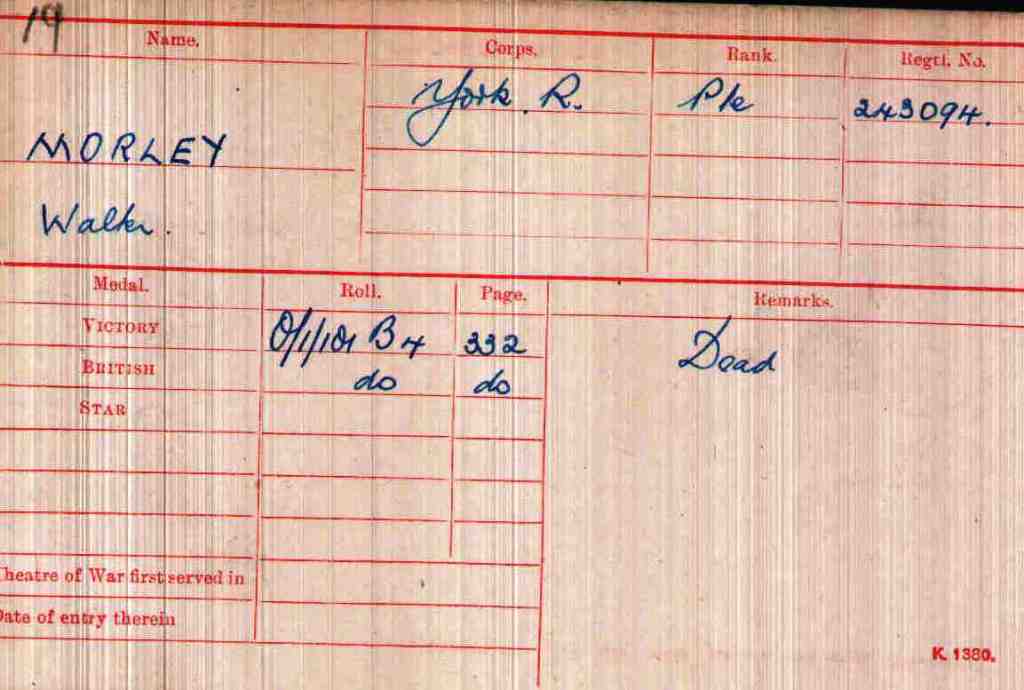 19
Name. Corps. Rank. Regtl. No.
York. R. Pte 243094.
MORLEY
Walter.
Medal. Roll. Page. Remarks.
VICTORY O/1/101 B4 332 Dead
BRITISH do do
STAR
Theatre of War first served in
Date of entry therein
K. 1380.